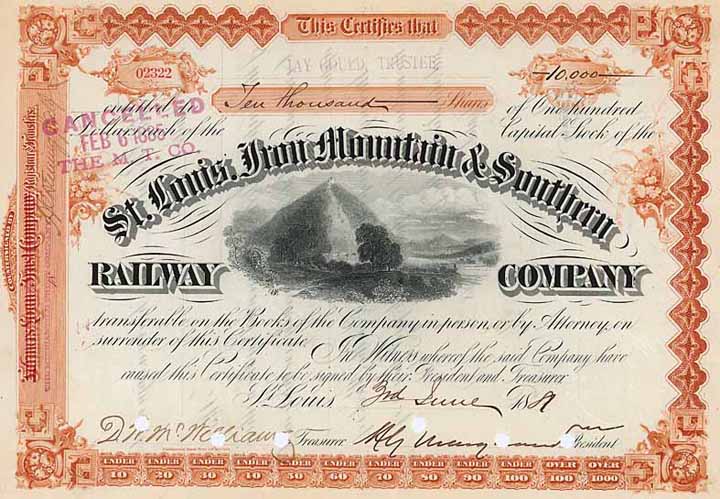 This Certifies that
02322
JAY GOULD, TRUSTEE
10,000
entitled to Ten thousand Shares of One hundred
Dollars each of the Capital Stock of the
CANCELLED
FEB 6 1885
THE M. T. CO.
St. Louis, Iron Mountain & Southern
RAILWAY COMPANY
transferable on the Books of the Company in person, or by Attorney, on
surrender of this Certificate. In Witness whereof the said Company have
caused this Certificate to be signed by their President and Treasurer
St. Louis 3rd June 1881
Treasurer President
UNDER 10 UNDER 20 UNDER 30 UNDER 40 UNDER 50 UNDER 60 UNDER 70 UNDER 80 UNDER 90 UNDER 100 OVER 100 OVER 1000